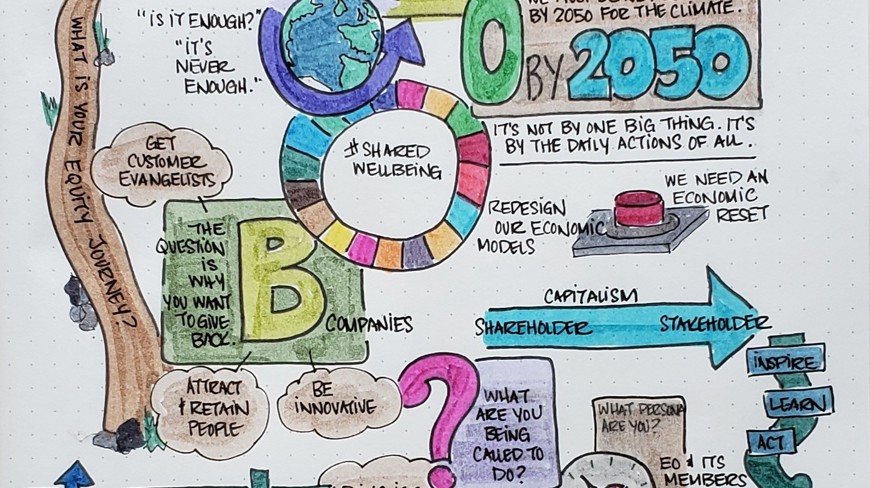 "IS IT ENOUGH?"
"IT'S
NEVER
ENOUGH."
BY 2050 FOR THE CLIMATE.
0 BY 2050
IT'S NOT BY ONE BIG THING. IT'S
BY THE DAILY ACTIONS OF ALL.
WHAT IS YOUR EQUITY JOURNEY?
GET
CUSTOMER
EVANGELISTS
#SHARED
WELLBEING
REDESIGN
OUR ECONOMIC
MODELS
WE NEED AN
ECONOMIC
RESET
THE
QUESTION
IS
WHY
YOU WANT
TO GIVE
BACK.
B
COMPANIES
ATTRACT
& RETAIN
PEOPLE
BE
INNOVATIVE
CAPITALISM
SHAREHOLDER STAKEHOLDER
INSPIRE
LEARN
ACT
?
WHAT
ARE YOU
BEING
CALLED TO
DO?
WHAT PERSONA
ARE YOU?
EO & ITS
MEMBERS